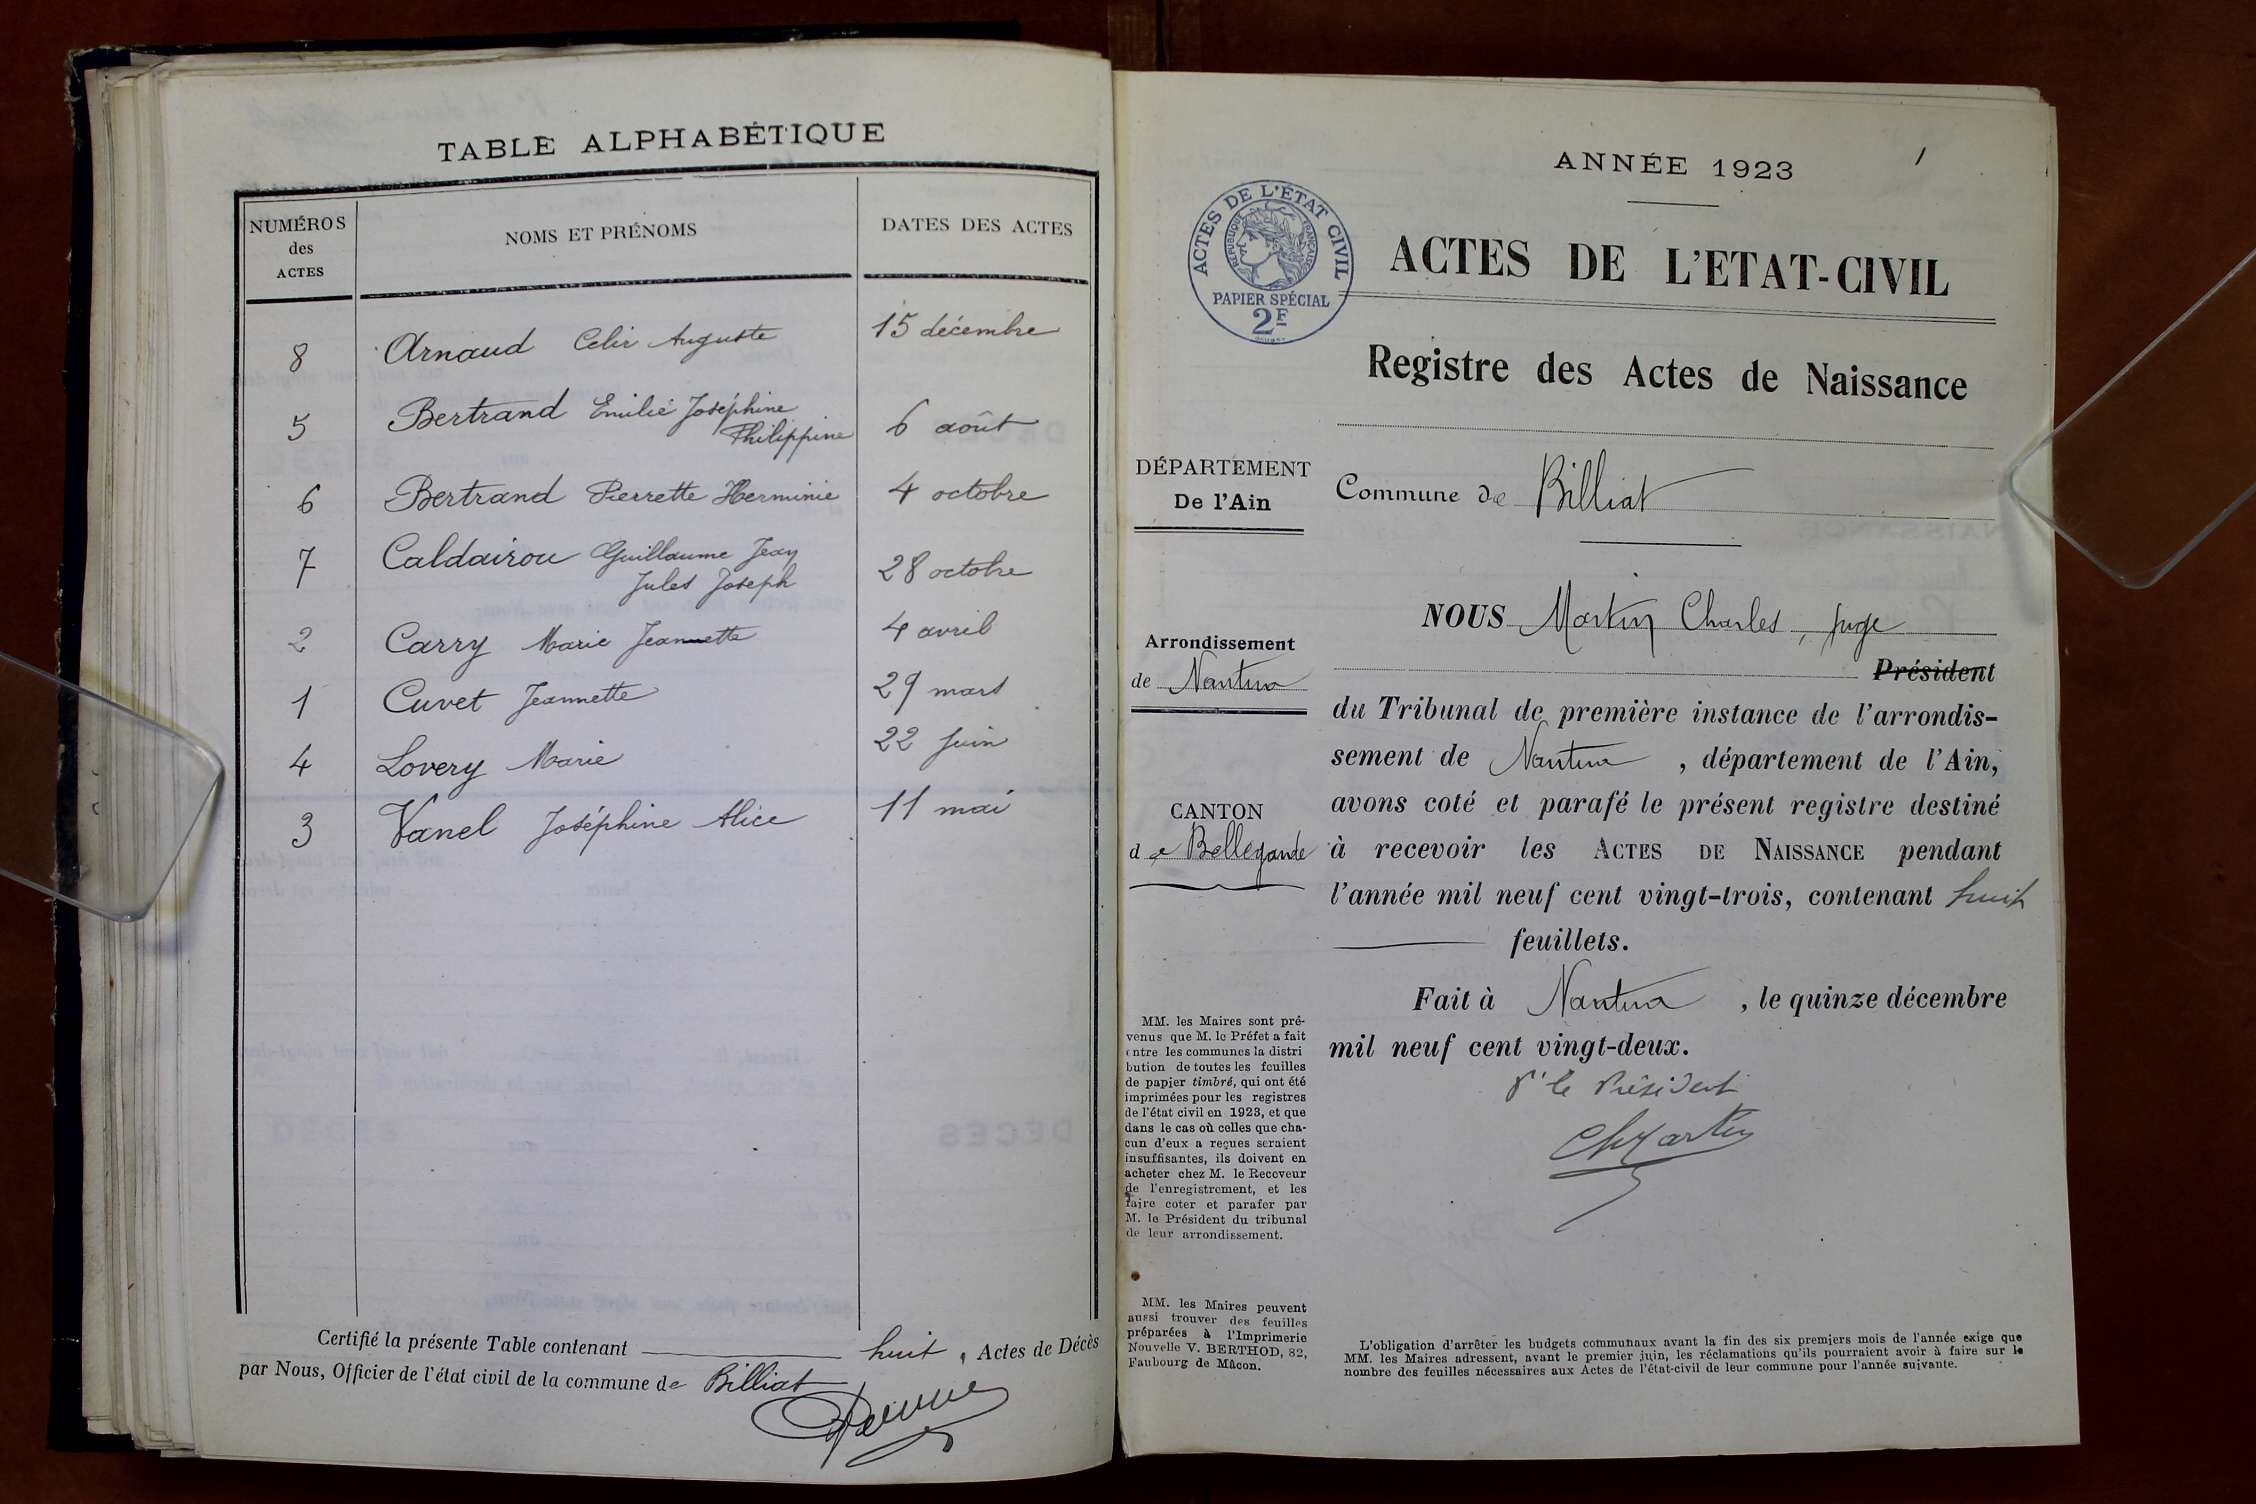 TABLE ALPHABÉTIQUE
NUMÉROS des ACTES
NOMS ET PRÉNOMS
DATES DES ACTES
8 Arnaud Celir Auguste 15 décembre
5 Bertrand Emilie Joséphine
Philippine 6 août
6 Bertrand Pierrette Herminie 4 octobre
7 Caldairou Guillaume Jean
Jules Joseph 28 octobre
2 Carry Marie Jeannette 4 avril
1 Cuvet Jeannette 29 mars
4 Lovery Marie 22 juin
3 Vanel Joséphine Alice 11 mai
Certifié la présente Table contenant huit, Actes de Décès
par Nous, Officier de l'état civil de la commune de Billiat
1
ANNÉE 1923
ACTES DE L'ÉTAT CIVIL
RÉPUBLIQUE FRANÇAISE
PAPIER SPÉCIAL
2F
ACTES DE L'ETAT-CIVIL
Registre des Actes de Naissance
DÉPARTEMENT
De l'Ain
Arrondissement
de Nantua
CANTON
de Bellegarde
MM. les Maires sont pré-
venus que M. le Préfet a fait
entre les communes la distri
bution de toutes les feuilles
de papier timbré, qui ont été
imprimées pour les registres
de l'état civil en 1923, et que
dans le cas où celles que cha-
cun d'eux a reçues seraient
insuffisantes, ils doivent en
acheter chez M. le Receveur
de l'enregistrement, et les
faire coter et parafer par
M. le Président du tribunal
de leur arrondissement.
MM. les Maires peuvent
aussi trouver des feuilles
préparées à l'Imprimerie
Nouvelle V. BERTHOD, 82,
Faubourg de Mâcon.
Commune de Billiat
NOUS Martin Charles, juge
Président
du Tribunal de première instance de l'arrondis-
sement de Nantua, département de l'Ain,
avons coté et parafé le présent registre destiné
à recevoir les ACTES DE NAISSANCE pendant
l'année mil neuf cent vingt-trois, contenant huit
feuillets.
Fait à Nantua, le quinze décembre
mil neuf cent vingt-deux.
Pr le Président
ChMartin
L'obligation d'arrêter les budgets communaux avant la fin des six premiers mois de l'année exige que
MM. les Maires adressent, avant le premier juin, les réclamations qu'ils pourraient avoir à faire sur le
nombre des feuilles nécessaires aux Actes de l'état-civil de leur commune pour l'année suivante.